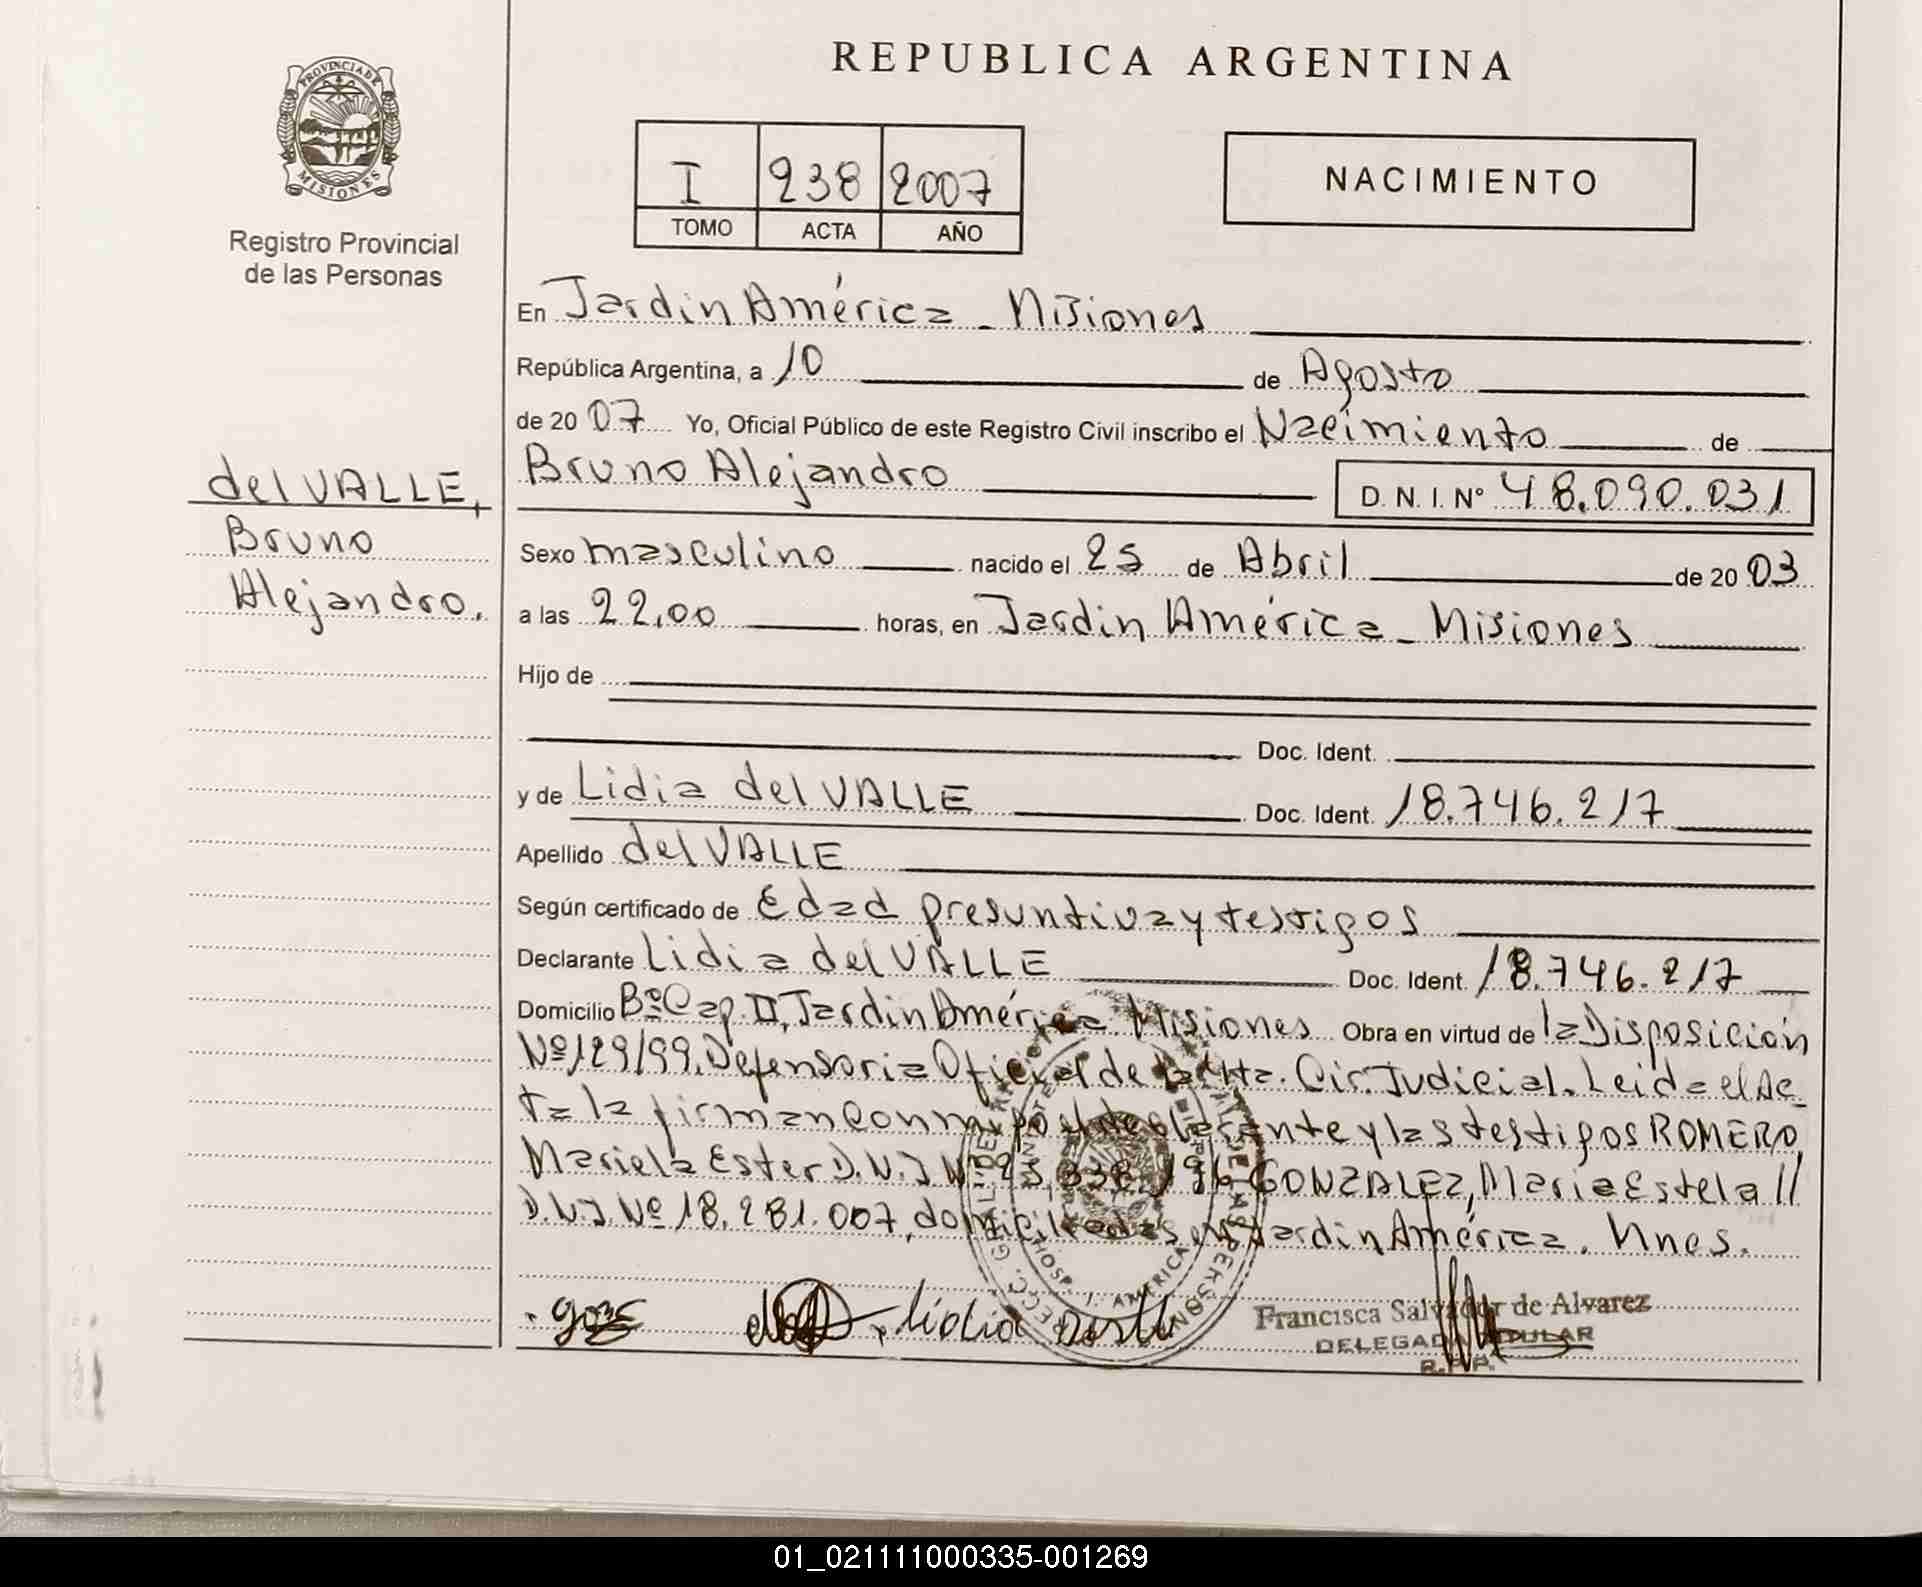 REPUBLICA ARGENTINA
PROVINCIA DE MISIONES
Registro Provincial
de las Personas
I 238 2007
TOMO ACTA AÑO
NACIMIENTO
En Jardin América - Misiones
República Argentina, a 10 de Agosto
de 20 07 Yo, Oficial Público de este Registro Civil inscribo el Nacimiento de
del VALLE,
Bruno
Alejandro.
Bruno Alejandro D. N. I. N° 48.090.031
Sexo masculino nacido el 25 de Abril de 20 03
a las 22,00 horas, en Jardin América - Misiones
Hijo de
Doc. Ident.
y de Lidia del VALLE Doc. Ident. 18.746.217
Apellido del VALLE
Según certificado de Edad presuntiva y testigos
Declarante Lidia del VALLE Doc. Ident. 18.746.217
Domicilio Bº Cap. II, Jardin América Misiones Obra en virtud de la Disposición
Nº 129/99. Defensoria Oficial de la 4ta. Cir. Judicial. Leida el Ac_
ta la firman conmigo el declarante y las testigos ROMERO,
Mariela Ester D.N.I Nº 23.338.196 GONZALEZ, Maria Estela //
D.N.I. Nº 18.281.007, domiciliadas en Jardin América. Mnes.
Lidia
HOSP. J. AMERICA
Francisca Salvador de Alvarez
DELEGADA TITULAR
R.P.P.
01_021111000335-001269